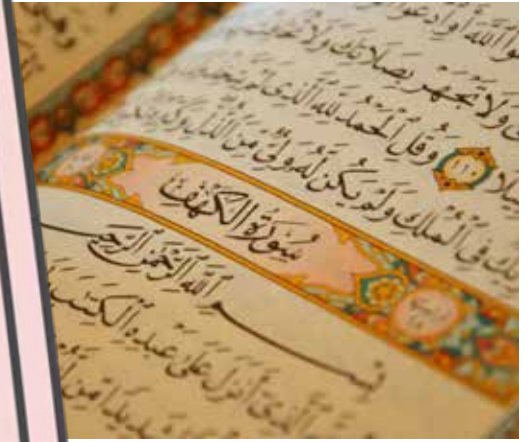 الله أو ادعوا
ولا تجهر بصلاتك ولا تخافت
سبيلا ١١٠ وقل الحمد لله الذي لم يتخذ
شريك في الملك ولم يكن له ولي من الذل وكبره
سورة الكهف
بسم الله الرحمن الرحيم
الذي أنزل على عبده الكتب
شديدا من